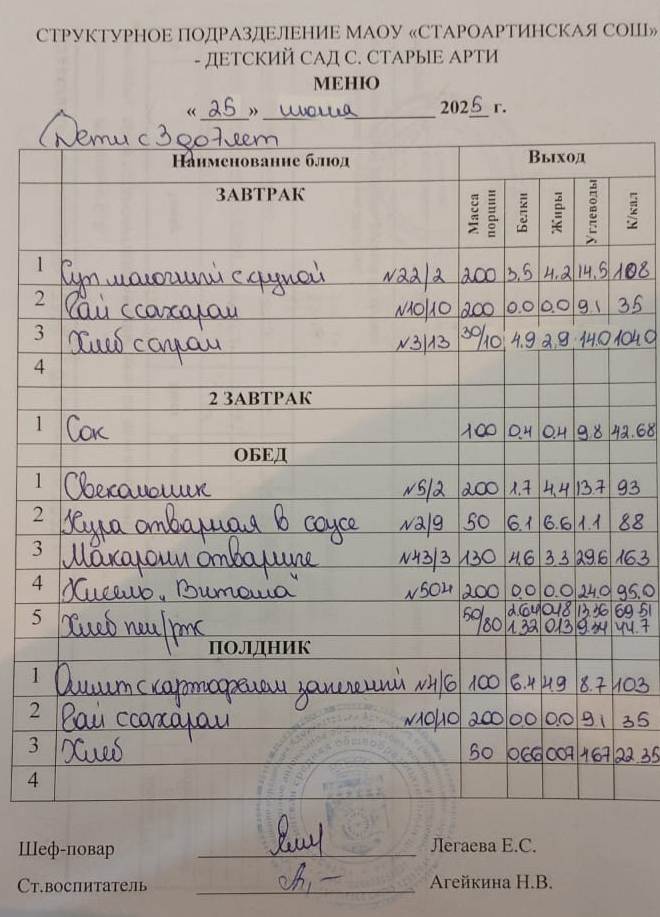 СТРУКТУРНОЕ ПОДРАЗДЕЛЕНИЕ МАОУ «СТАРОАРТИНСКАЯ СОШ»
- ДЕТСКИЙ САД С. СТАРЫЕ АРТИ
МЕНЮ
« 25 » июня 2025 г.
Дети с 3 до 7 лет
Наименование блюд Выход
ЗАВТРАК Масса порции Белки Жиры Углеводы К/кал
1 Суп молочный с крупой №22/2 200 3,5 4.2 14,5 108
2 Чай с сахаром №10/10 200 0.0 0.0 9.1 35
3 Хлеб с сыром №3/13 30/10 4.9 2.9 14.0 104.0
4
2 ЗАВТРАК
1 Сок 100 0.4 0.4 9.8 42.68
ОБЕД
1 Свекольник №5/2 200 1.7 4,4 13.7 93
2 Кура отварная в соусе №2/9 50 6.1 6.6 1.1 88
3 Макароны отварные №43/3 130 4.6 3.3 29.6 163
4 Кисель „Витоша" №504 200 0.0 0.0 24.0 95.0
5 Хлеб пш/рж 50/80 2.64 0.48 13.36 69.51
1.32 0.13 9.34 44.7
ПОЛДНИК
1 Омлет с картофелем запеченный №4/6 100 6.4 4.9 8.7 103
2 Чай с сахаром №10/10 200 0.0 0.0 9.1 35
3 Хлеб 50 0.66 0.07 4.67 22.35
4
Шеф-повар Легаева Е.С.
Ст.воспитатель Агейкина Н.В.